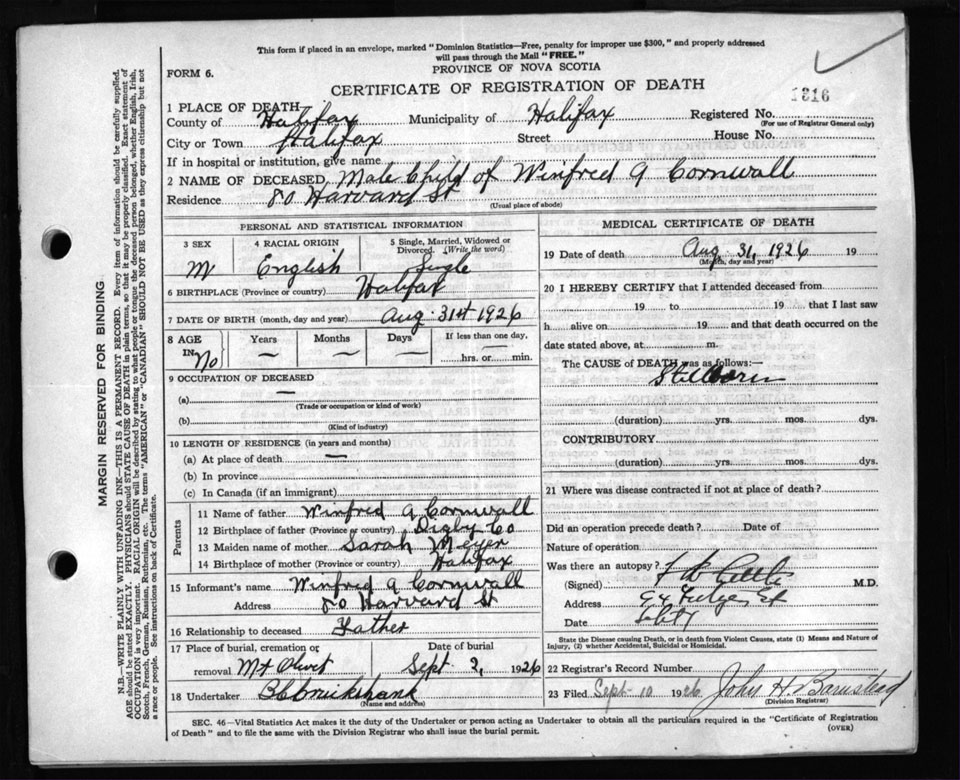 This form if placed in an envelope, marked "Dominion Statistics—Free, penalty for improper use $300," and properly addressed
will pass through the Mail "FREE."
PROVINCE OF NOVA SCOTIA
FORM 6.
CERTIFICATE OF REGISTRATION OF DEATH
1316
1 PLACE OF DEATH
County of Halifax Municipality of Halifax Registered No.
(For use of Registrar General only)
City or Town Halifax Street House No.
If in hospital or institution, give name
2 NAME OF DECEASED Male Child of Winfred A Cornwall
Residence 80 Harvard St
(Usual place of abode)
PERSONAL AND STATISTICAL INFORMATION
3 SEX 4 RACIAL ORIGIN 5 Single, Married, Widowed or
Divorced. (Write the word)
M English Single
6 BIRTHPLACE (Province or country) Halifax
7 DATE OF BIRTH (month, day and year) Aug. 31st 1926
8 AGE Years Months Days If less than one day,
IN No — — — —
hrs. or min.
9 OCCUPATION OF DECEASED
(a) —
(Trade or occupation or kind of work)
(b)
(Kind of industry)
10 LENGTH OF RESIDENCE (in years and months)
(a) At place of death —
(b) In province
(c) In Canada (if an immigrant)
Parents
11 Name of father Winfred A Cornwall
12 Birthplace of father (Province or country) Digby Co
13 Maiden name of mother Sarah Meyer
14 Birthplace of mother (Province or country) Halifax
15 Informant's name Winfred A Cornwall
Address 80 Harvard St
16 Relationship to deceased Father
17 Place of burial, cremation or Date of burial
removal Mt Olivet Sept 2, 1926
18 Undertaker Cruikshank
(Name and address)
MEDICAL CERTIFICATE OF DEATH
19 Date of death Aug 31, 1926 19
(Month, day and year)
20 I HEREBY CERTIFY that I attended deceased from
19 to 19 that I last saw
h alive on 19 and that death occurred on the
date stated above, at m.
The CAUSE of DEATH was as follows:—
Stillborn
(duration) yrs. mos. dys.
CONTRIBUTORY
(duration) yrs. mos. dys.
21 Where was disease contracted if not at place of death?
Did an operation precede death? Date of
Nature of operation
Was there an autopsy?
(Signed) M.D.
Address
Date
State the Disease causing Death, or in death from Violent Causes, state (1) Means and Nature of
Injury, (2) whether Accidental, Suicidal or Homicidal.
22 Registrar's Record Number
23 Filed Sept 10 1926 John H. Barnstead
(Division Registrar)
SEC. 46—Vital Statistics Act makes it the duty of the Undertaker or person acting as Undertaker to obtain all the particulars required in the "Certificate of Registration
of Death" and to file the same with the Division Registrar who shall issue the burial permit.
(OVER)
MARGIN RESERVED FOR BINDING
N.B.—WRITE PLAINLY WITH UNFADING INK—THIS IS A PERMANENT RECORD. Every item of information should be carefully supplied.
AGE should be stated EXACTLY. PHYSICIANS should STATE CAUSE OF DEATH in plain terms, so that it may be properly classified. Exact statement of
OCCUPATION is very important. RACIAL ORIGIN will be described by stating to what people or tongue the deceased person belonged, whether English, Irish,
Scotch, French, German, Russian, Ruthenian, etc. The terms "AMERICAN" or "CANADIAN" SHOULD NOT BE USED as they express citizenship but not
a race or people. See instructions on back of Certificate.